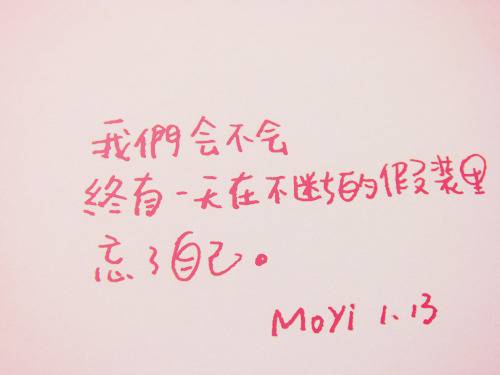 我們会不会
終有一天在不断的假装里
忘了自己。
MoYi 1.13